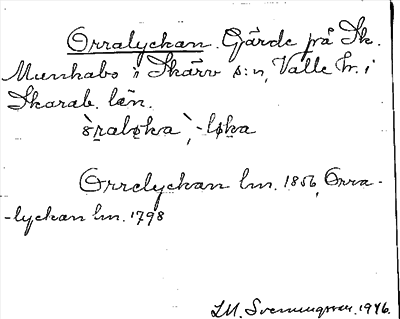 Orralyckan. Gärde på Sk.
Munkabo i Skärv s:n, Valle hr. i
Skarab. län.
òraləka`, -ləka
Orrelyckan lm. 1856, Orra-
-lyckan lm. 1798
I.M. Svenungsson. 1946.